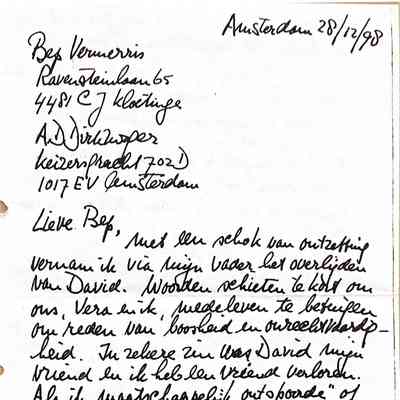 Amsterdam 28/12/98
Bep Vermerris
Ravensteinlaan 65
4481 CJ Kloetinge
A.D. Dirkzwager
Keizersgracht 702D
1017 EV Amsterdam
Lieve Bep,
met een schok van ontzetting
vernam ik via mijn vader het overlijden
van David. Woorden schieten te kort om
ons, Vera en ik, medeleven te betuigen
om reden van boosheid en onrechtvaardig-
heid. In zekere zin was David mijn
vriend en ik heb een vriend verloren.
Als ik maatschappelijk "ontspoorde" of